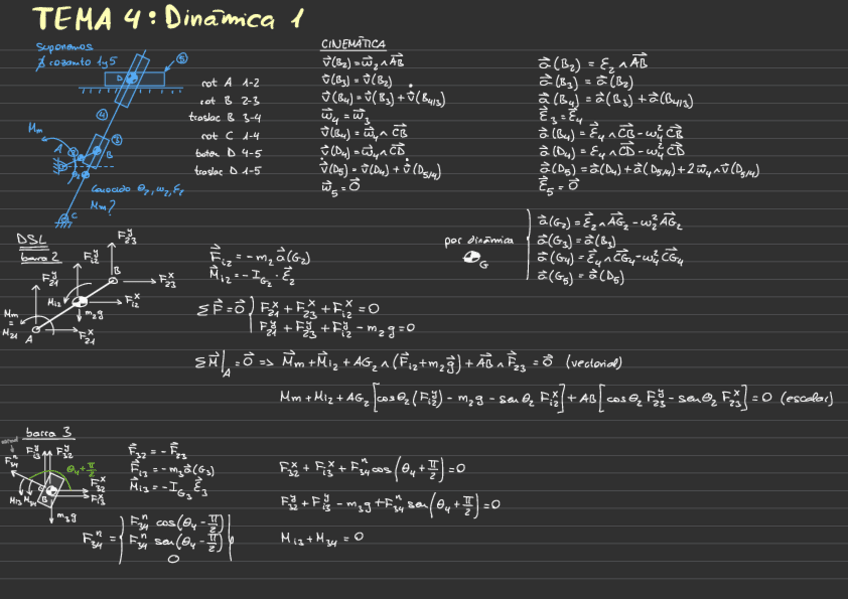 TEMA 4: Dinámica 1
Suponemos
∄ rozamto 1y5
⑤
D
④
Mm
③
A
B
C
Conocido θ₂, ω₂, ε₂
Mm?
rot A 1-2
rot B 2-3
traslac B 3-4
rot C 1-4
rotac D 4-5
traslac D 1-5
CINEMÁTICA
v⃗(B₂) = ω⃗₂ ∧ A⃗B⃗
v⃗(B₃) = v⃗(B₂)
v⃗(B₄) = v⃗(B₃) + v⃗(B₄/₃)
ω⃗₄ = ω⃗₃
v⃗(B₄) = ω⃗₄ ∧ C⃗B⃗
v⃗(D₄) = ω⃗₄ ∧ C⃗D⃗
v⃗(D₅) = v⃗(D₄) + v⃗(D₅/₄)
ω⃗₅ = 0⃗
a⃗(B₂) = ε⃗₂ ∧ A⃗B⃗
a⃗(B₃) = a⃗(B₂)
a⃗(B₄) = a⃗(B₃) + a⃗(B₄/₃)
ε⃗₃ = ε⃗₄
a⃗(B₄) = ε⃗₄ ∧ C⃗B⃗ - ω₄² C⃗B⃗
a⃗(D₄) = ε⃗₄ ∧ C⃗D⃗ - ω₄² C⃗D⃗
a⃗(D₅) = a⃗(D₄) + a⃗(D₅/₄) + 2ω⃗₄ ∧ v⃗(D₅/₄)
ε⃗₅ = 0⃗
por dinámica
G
a⃗(G₂) = ε⃗₂ ∧ A⃗G⃗₂ - ω₂² A⃗G⃗₂
a⃗(G₃) = a⃗(B₃)
a⃗(G₄) = ε⃗₄ ∧ C⃗G⃗₄ - ω₄² C⃗G⃗₄
a⃗(G₅) = a⃗(D₅)
DSL
barra 2
F₂₃ʸ
Fᵢ₂ʸ
B
F₂₁ʸ
F₂₃ˣ
Mᵢ₂
Fᵢ₂ˣ
Mm
=
M₂₁
m₂g
A
F₂₁ˣ
F⃗ᵢ₂ = -m₂ a⃗(G₂)
M⃗ᵢ₂ = -I_G₂ · ε⃗₂
ΣF⃗ = 0⃗ { F₂₁ˣ + F₂₃ˣ + Fᵢ₂ˣ = 0
F₂₁ʸ + F₂₃ʸ + Fᵢ₂ʸ - m₂g = 0
ΣM⃗|_A = 0⃗ => M⃗m + M⃗ᵢ₂ + AG₂ ∧ (F⃗ᵢ₂ + m₂g⃗) + A⃗B⃗ ∧ F⃗₂₃ = 0⃗ (vectorial)
Mm + Mᵢ₂ + AG₂ [cosθ₂ (Fᵢ₂ʸ) - m₂g - senθ₂ Fᵢ₂ˣ] + AB [cosθ₂ F₂₃ʸ - senθ₂ F₂₃ˣ] = 0 (escalar)
barra 3
normal
Fᵢ₃ʸ F₃₂ʸ
F₃₄ⁿ
θ₄ + π/2
F₃₂ˣ
Fᵢ₃ˣ
Mᵢ₃ M₃₄ B
m₃g
F⃗₃₂ = -F⃗₂₃
F⃗ᵢ₃ = -m₃ a⃗(G₃)
M⃗ᵢ₃ = -I_G₃ ε⃗₃
F₃₄ⁿ = { F₃₄ⁿ cos(θ₄ - π/2)
F₃₄ⁿ sen(θ₄ - π/2)
0 }
F₃₂ˣ + Fᵢ₃ˣ + F₃₄ⁿ cos(θ₄ + π/2) = 0
F₃₂ʸ + Fᵢ₃ʸ - m₃g + F₃₄ⁿ sen(θ₄ + π/2) = 0
Mᵢ₃ + M₃₄ = 0